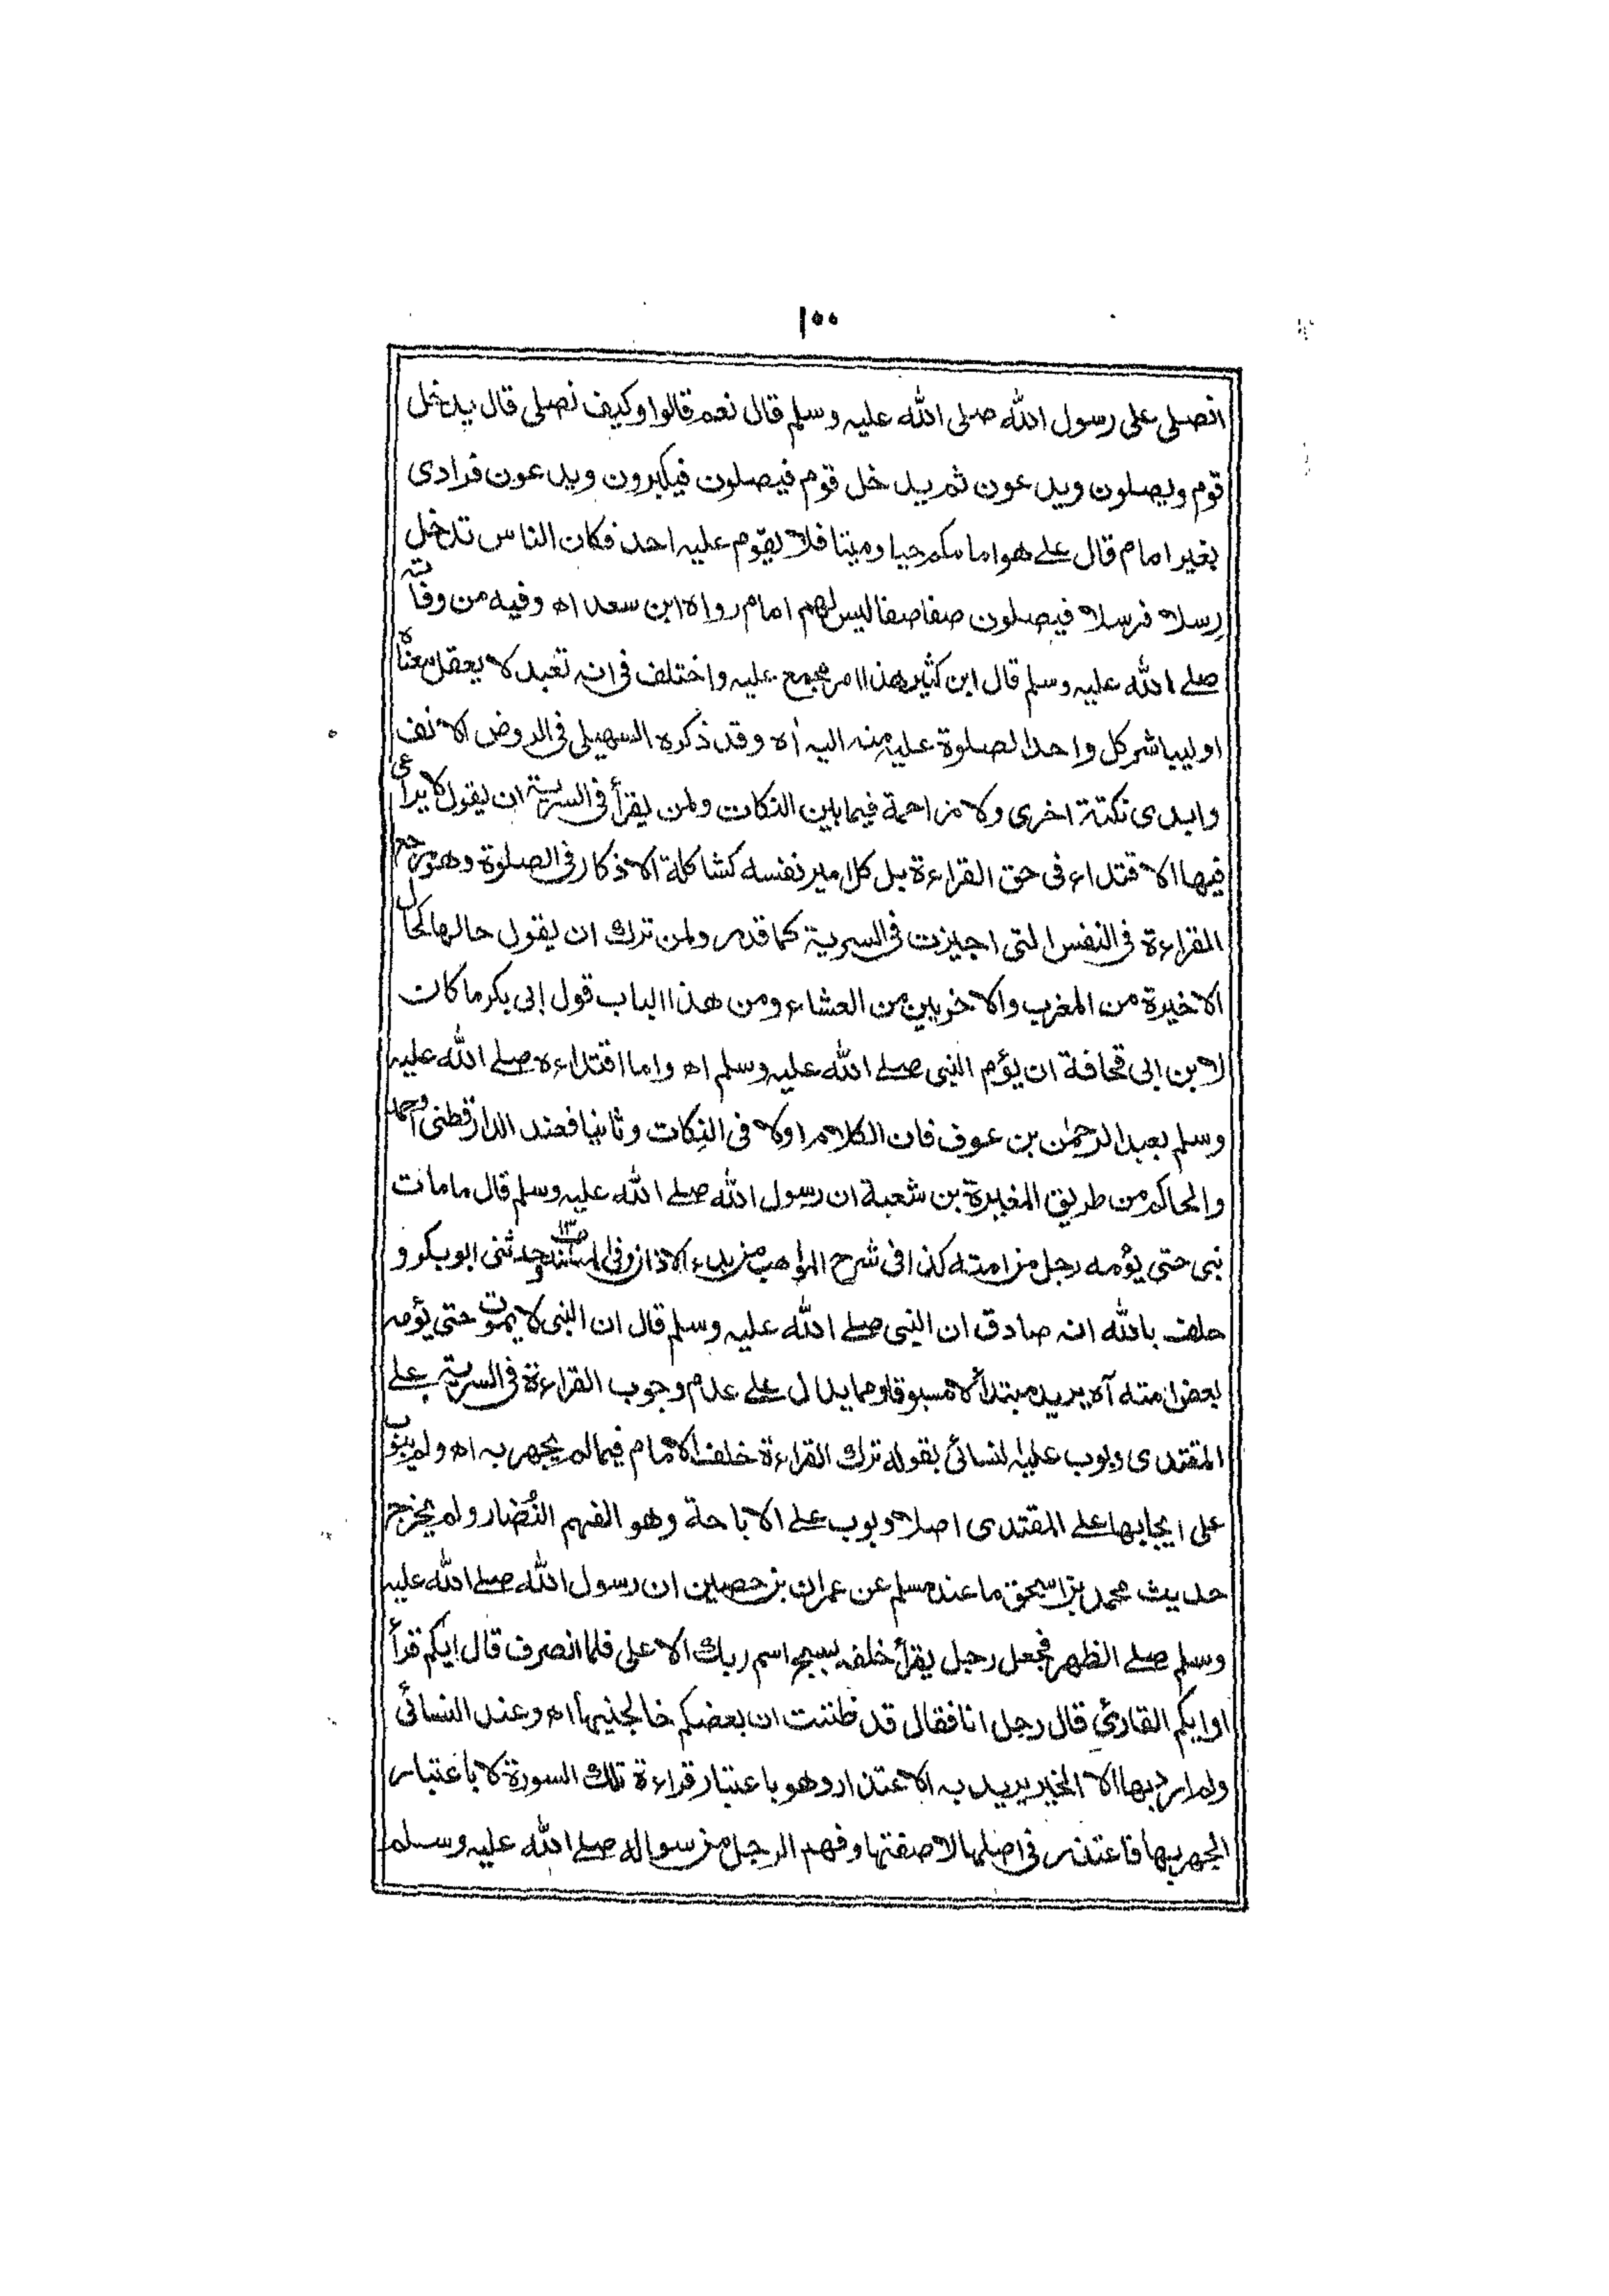 ١٠٠
انصلى على رسول الله صلى الله عليه وسلم قال نعم قالوا وكيف نصلى قال يدخل
قوم ويصلون ويدعون ثم يدخل قوم فيصلون فيكبرون ويدعون فرادى
بغير امام قال على هو امامكم حيا وميتا فلا يقوم عليه احد فكان الناس تدخل
رسلا فرسلا فيصلون صفا صفا ليس لهم امام رواه ابن سعد اه وفيه من وفاته
صلى الله عليه وسلم قال ابن كثير هذا امر مجمع عليه واختلف فى انه تعبد لا يعقل معناه
او ليباشر كل واحد الصلوة عليه منه اليه اه وقد ذكره السهيلى فى الروض الانف
وابدى نكتة اخرى ولا مزاحمة فيما بين النكات ولمن يقرأ فى السرية ان يقول لا يراعى
فيها الاقتداء فى حق القراءة بل كل امير نفسه كشاكلة الاذكار فى الصلوة وهو مرجع
القراءة فى النفس التى اجيزت فى السرية كما قدم ولمن ترك ان يقول حالها كحال
الاخيرة من المغرب والاخريين من العشاء ومن هذا الباب قول ابى بكر ما كان
لابن ابى قحافة ان يؤم النبى صلى الله عليه وسلم اه واما اقتداءه صلى الله عليه
وسلم بعبد الرحمن بن عوف فان الكلام اولا فى النكات وثانيا فعند الدارقطنى واحمد
والحاكم من طريق المغيرة بن شعبة ان رسول الله صلى الله عليه وسلم قال ما مات
نبى حتى يؤمه رجل من امته كذا فى شرح المواهب من بدء الاذان وفى المسند ص١٣ حدثنى ابو بكر و
حلف بالله انه صادق ان النبى صلى الله عليه وسلم قال ان النبى لا يموت حتى يؤمه
بعض امته آه يريد مبتدأ لا مسبوقا ومما يدل على عدم وجوب القراءة فى السرية على
المقتدى وبوب عليه النسائى بقوله ترك القراءة خلف الامام فيما لم يجهر به اه ولم يبوب
على ايجابها على المقتدى اصلا وبوب على الاباحة وهو الفهم النُضار ولم يخرج
حديث محمد بن اسحق ما عند مسلم عن عمران بن حصين ان رسول الله صلى الله عليه
وسلم صلى الظهر فجعل رجل يقرأ خلفه بسبح اسم ربك الاعلى فلما انصرف قال ايكم قرأ
او ايكم القارئ قال رجل انا فقال قد ظننت ان بعضكم خالجنيها اه وعند النسائى
ولم ارد بها الا الخير يريد به الاعتذار وهو باعتبار قراءة تلك السورة لا باعتبار
الجهر بها فاعتذر فى اصلها لا صفتها وفهم الرجل من سواله صلى الله عليه وسلم